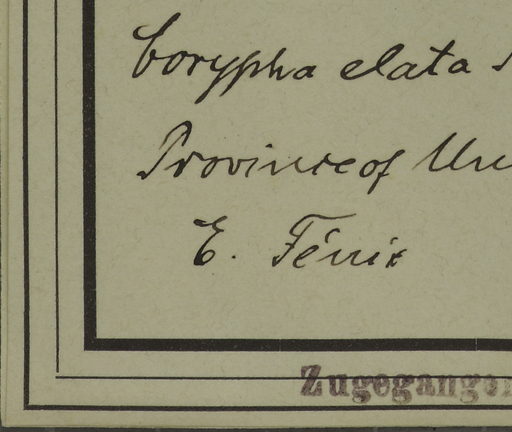 Corypha elata
Province of Un
E. Fénix
Zugegangen